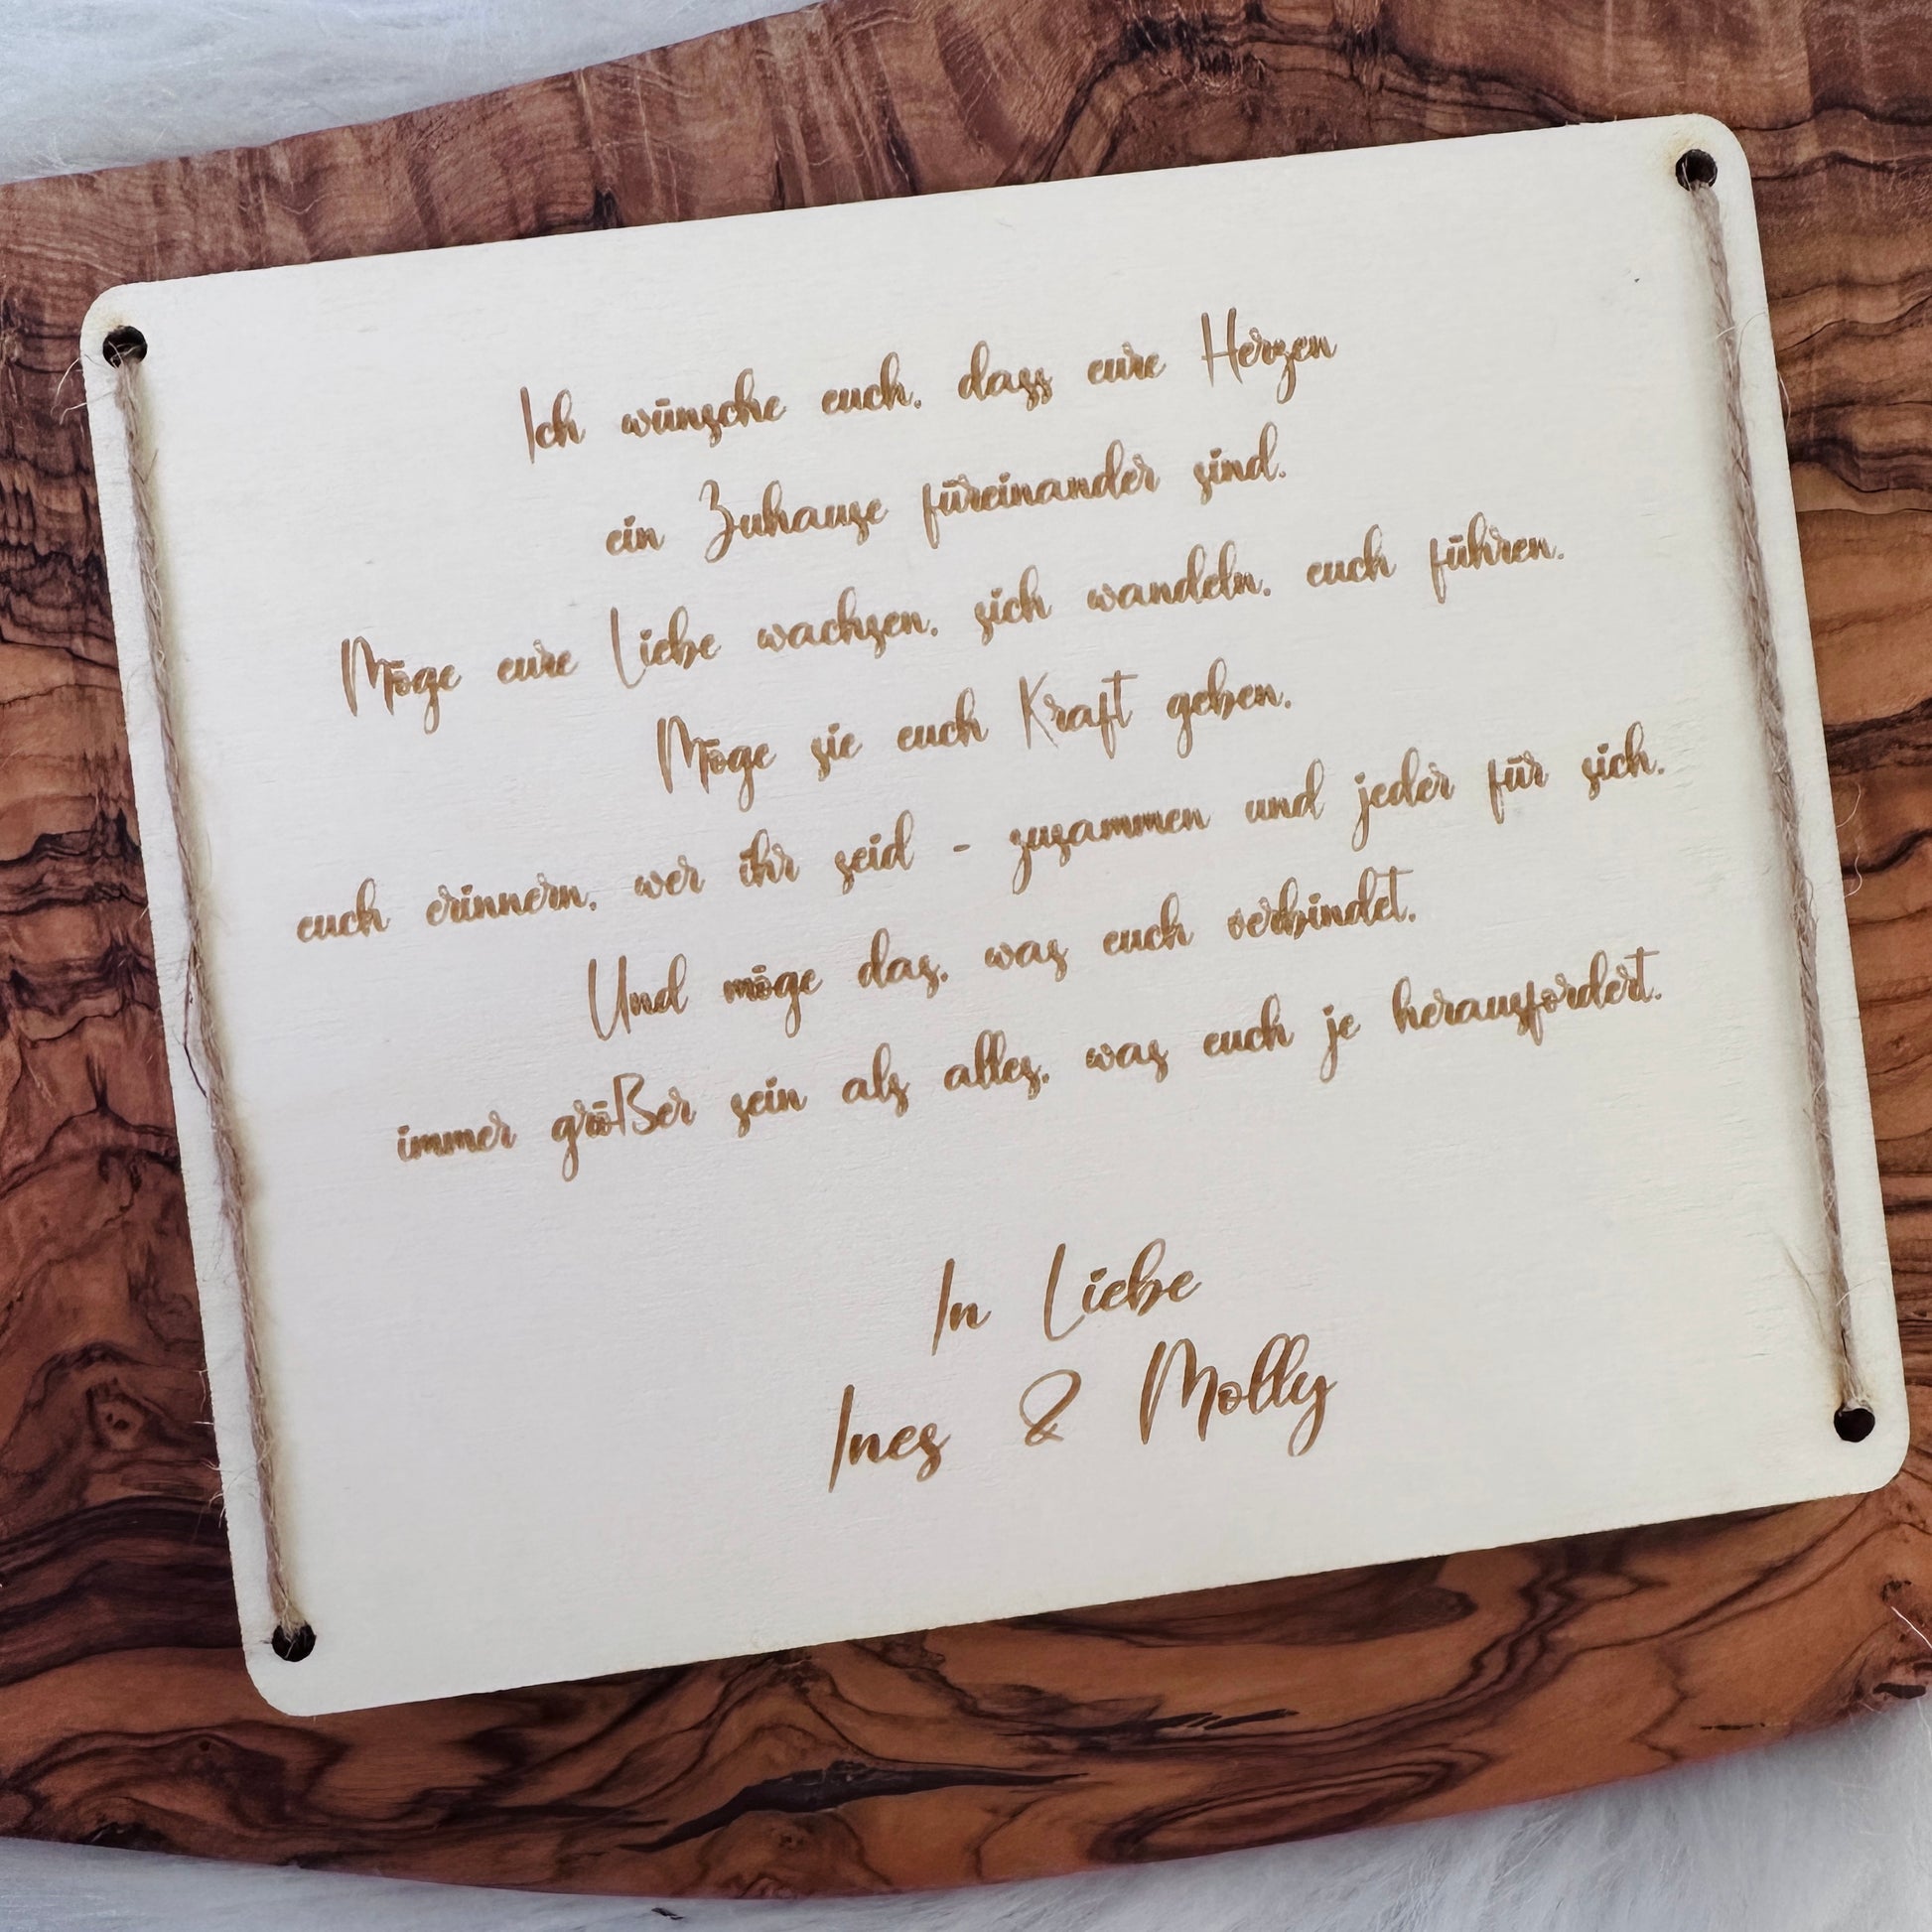 Ich wünsche euch, dass eure Herzen
ein Zuhause füreinander sind.
Möge eure Liebe wachsen, sich wandeln, euch führen.
Möge sie euch Kraft geben,
euch erinnern, wer ihr seid - zusammen und jeder für sich.
Und möge das, was euch verbindet,
immer größer sein als alles, was euch je herausfordert.
In Liebe
Ines & Molly